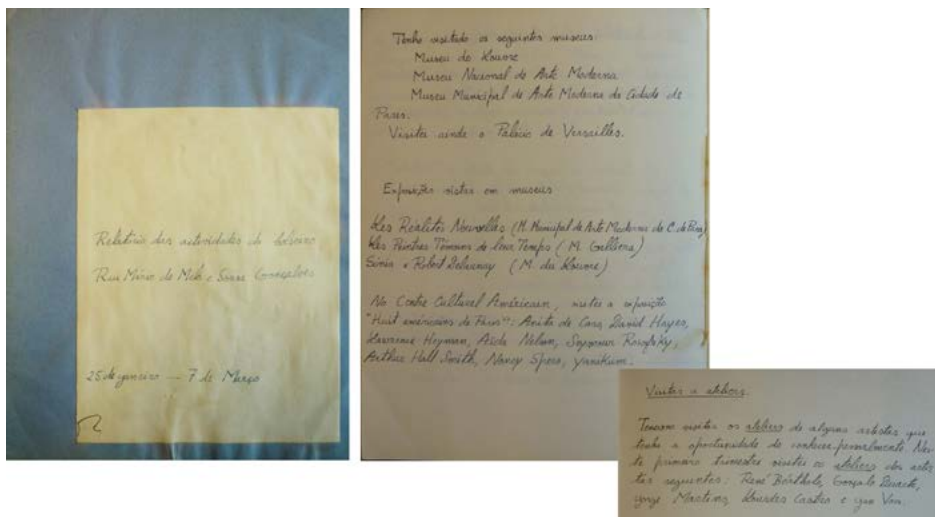 Relatório das actividades do bolseiro
Rui Mário de Melo e Sousa Gonçalves
25 de janeiro — 7 de Março
Tenho visitado os seguintes museus:
Museu do Louvre
Museu Nacional de Arte Moderna
Museu Municipal de Arte Moderna da Cidade de
Paris.
Visitei ainda o Palácio de Versailles.
Exposições vistas em museus
Les Réalités Nouvelles (M. Municipal de Arte Moderna da C. de Paris)
Les Peintres Témoins de leur Temps (M. Galliera)
Sónia e Robert Delaunay (M. du Louvre)
No Centre Culturel Américain, visitei a exposição
"Huit américains de Paris": Anita de Caro, David Hayes,
Lawrence Heyman, Aïda Nelson, Seymour Rosofsky,
Arthur Hall Smith, Nancy Spero, Yanikum.
Visitas a ateliers.
Tenciono visitar os ateliers de alguns artistas que
tenho a oportunidade de conhecer pessoalmente. Nes-
te primeiro trimestre visitei os ateliers dos artis-
tas seguintes: René Bértholo, Gonçalo Duarte,
Jorge Martins, Lourdes Castro e Jan Voss.